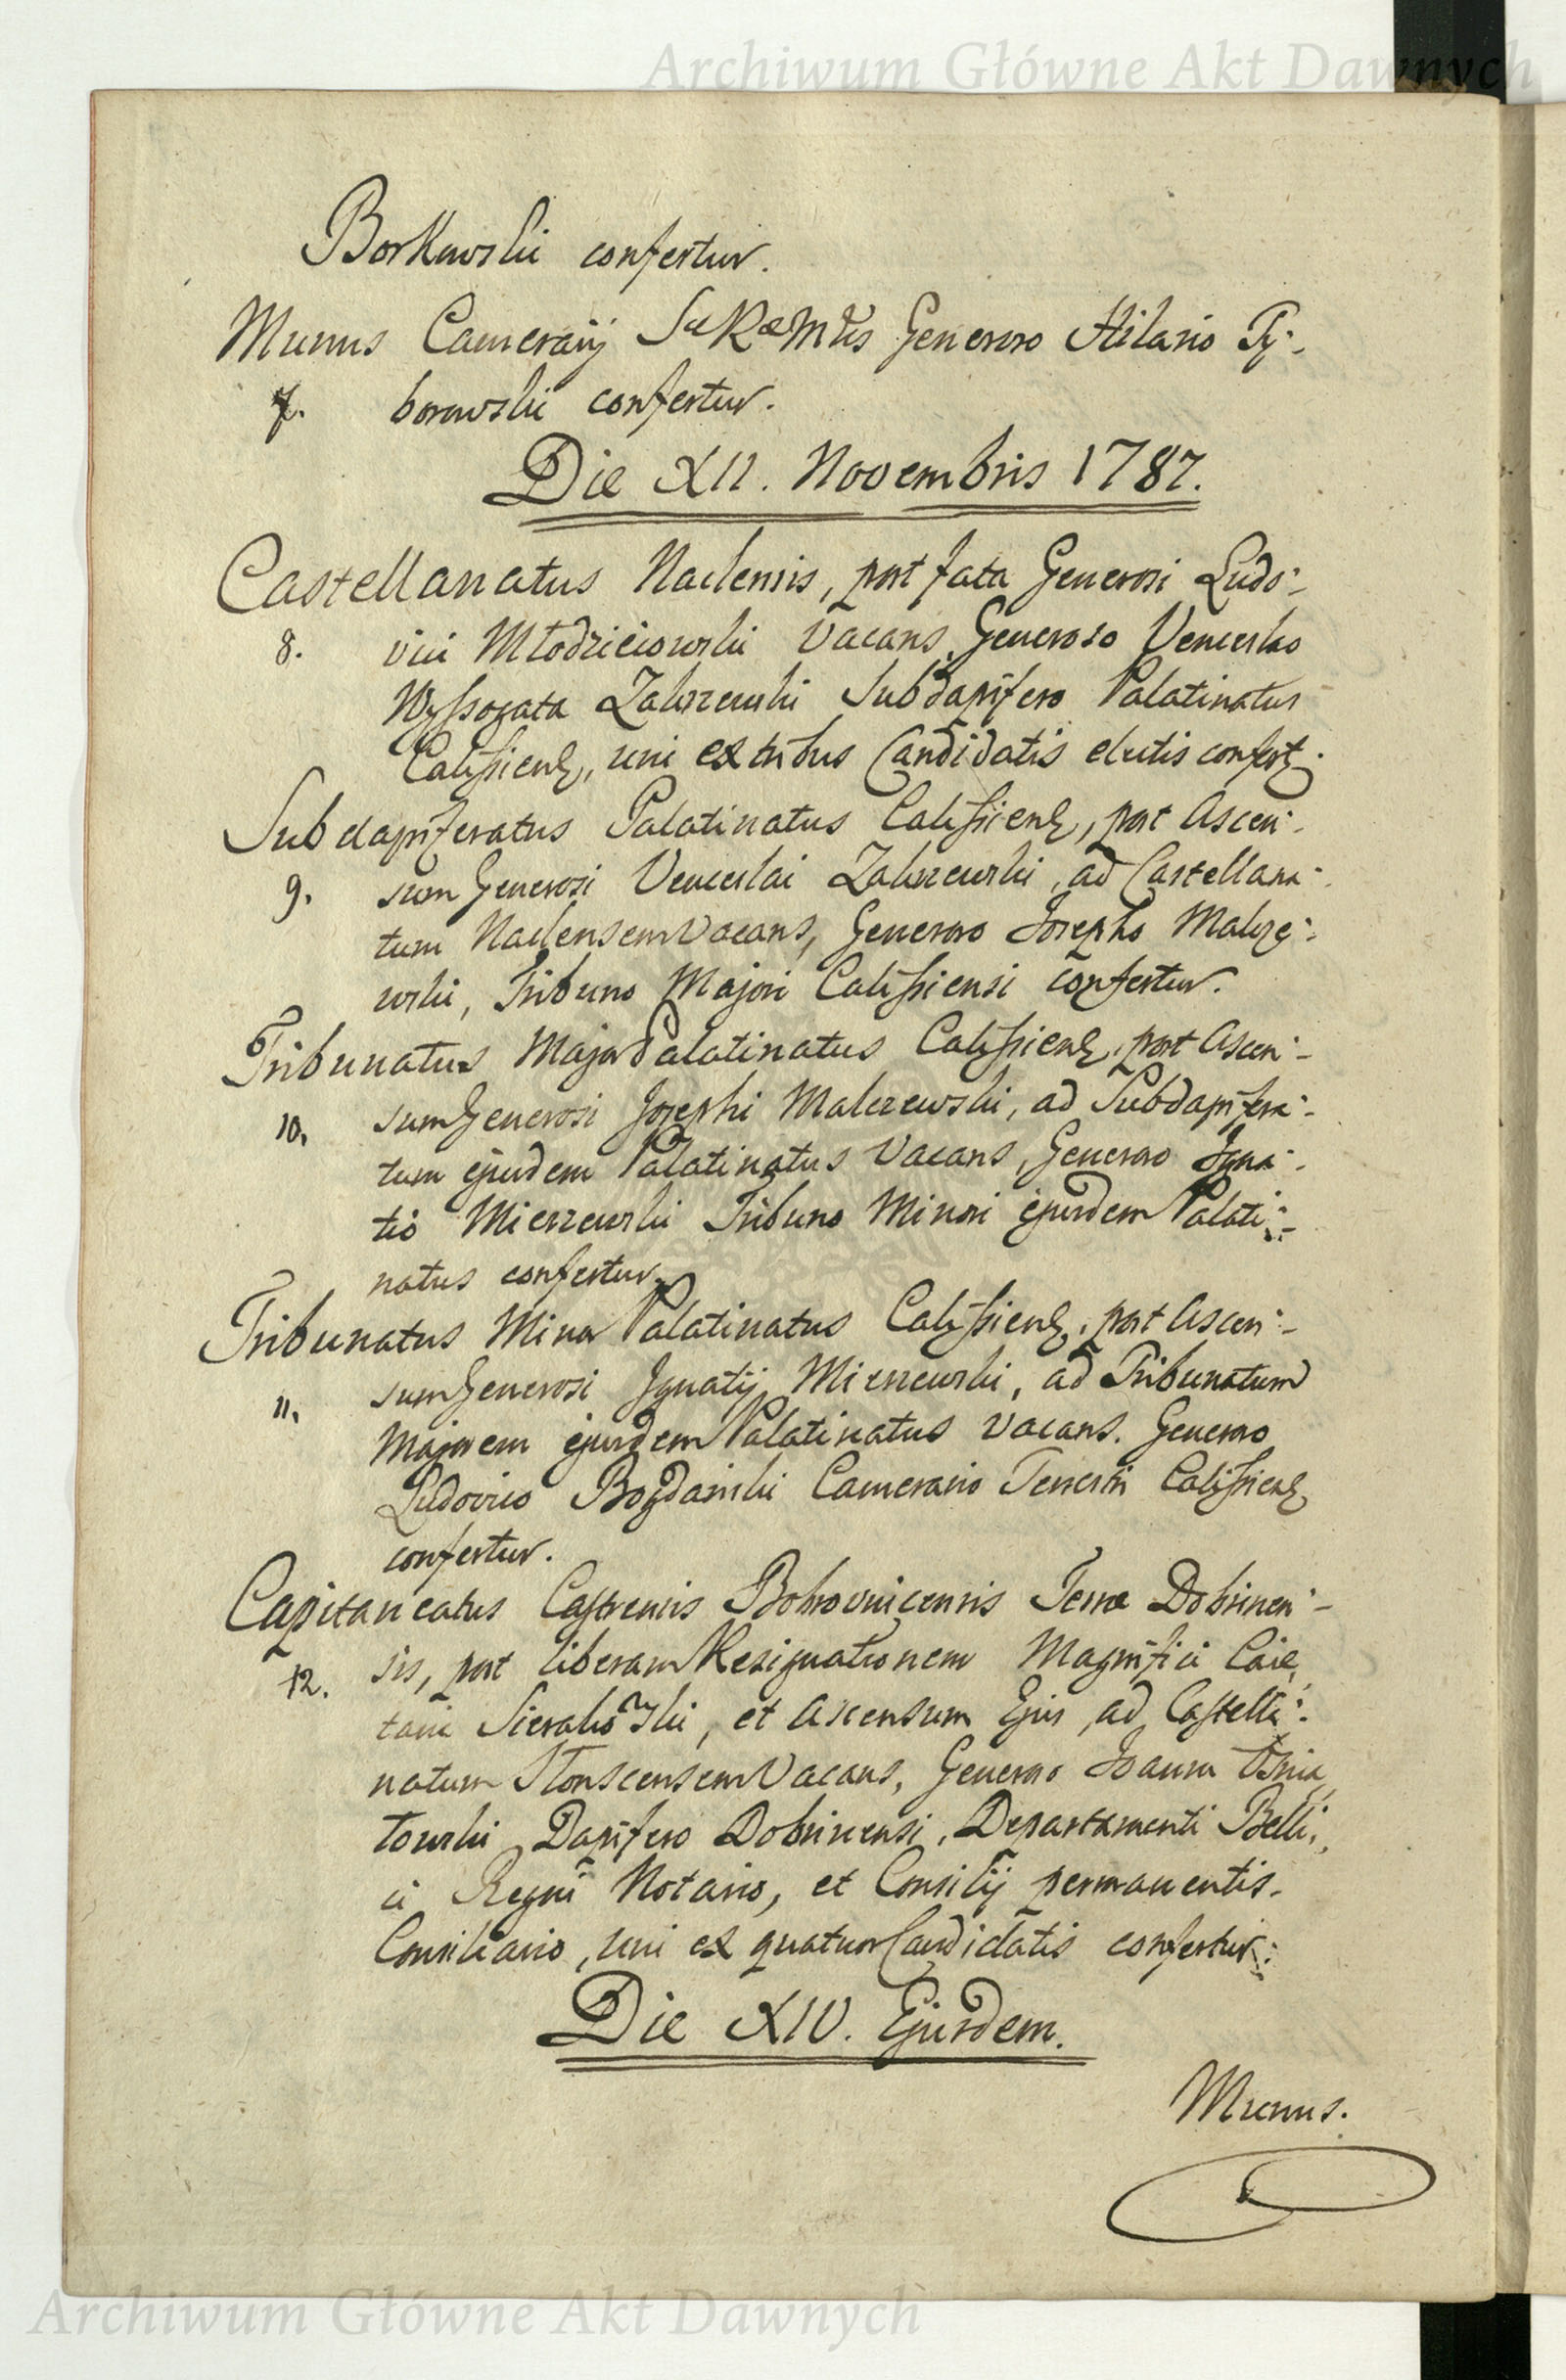 Archiwum Główne Akt Dawnych
Borkowski confertur.
Munus Camerarij SæRæMtis Generoso Hilario Ty:
7. borowski confertur.
Die XII. Novembris 1787.
Castellanatus Naclensis, post fata Generosi Ludo:
8. vici Młodzieiowski Vacans, Generoso Venceslao
Wyssogata Zakrzewski Subdapifero Palatinatus
Calissiens, uni ex tribus Candidatis electis confert.
Subdapiferatus Palatinatus Calissiens, post Ascen:
9. sum Generosi Venceslai Zakrzewski, ad Castellana:
tum Naclensem Vacans, Generoso Josepho Malcze:
wski, Tribuno Majori Calissiensi confertur.
Tribunatus Major Palatinatus Calissiens, post Ascen:
10. sum Generosi Josephi Malczewski, ad Subdapifera:
tum ejusdem Palatinatus Vacans, Generoso Igna:
tio Mierzewski Tribuno Minori ejusdem Palati:
natus confertur.
Tribunatus Minor Palatinatus Calissiens, post Ascen:
11. sum Generosi Ignatij Mierzewski, ad Tribunatum
Majorem ejusdem Palatinatus vacans. Generoso
Ludovico Bogdański Camerario Terrestri Calissiens
confertur.
Capitaneatus Castrensis Bobrovnicensis Terræ Dobrinen:
12. sis, post liberam Resignationem Magnifici Caie,
tani Sierakowski, et Ascensum Ejus, ad Castella:
natum Słonscensem Vacans, Generoso Joanni Śnia
towski Dapifero Dobrinensi, Departamenti Belli,
ci Regni Notario, et Consilij permanentis.
Consiliario, uni ex quatuor Candidatis confertur:
Die XIV. Ejusdem.
Munus.
Archiwum Główne Akt Dawnych